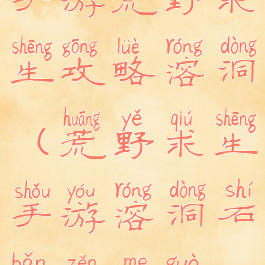 手游荒野求
shēng gōng lüè róng dòng
生攻略溶洞
huāng yě qiú shēng
（荒野求生
shǒu yóu róng dòng shí
手游溶洞石
bǎn zěn me guò